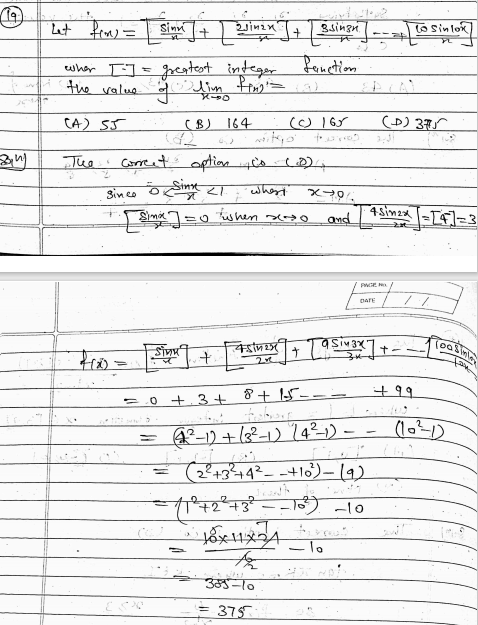 19
Let f(x) = [sinx/x] + [2sin2x/x] + [3sin3x/x] ---+ [10 sin10x/x]
wher [·] = greatest integer function
the value of lim x→0 f(x) =
(A) 55 (B) 164 (C) 165 (D) 375
Sol^n) The correct option is (D)
since 0 < sinx/x < 1 whert x→0
[sinx/x] = 0 when x→0 and [4sin2x/2x] = [4^-] = 3
PAGE No.
DATE / /
f(x) = [sinx/x] + [4sin2x/2x] + [9sin3x/3x] + --- [100sin10x/10x]
= 0 + 3 + 8 + 15 ---- + 99
= (2²-1) + (3²-1) (4²-1) -- (10²-1)
= (2²+3²+4² --+10²) - (9)
= (1²+2²+3² --10²) -10
= 10×11×21/6 -10
= 385-10
= 375